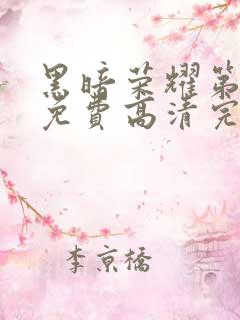 黑暗荣耀第
免费高清完
李京橋